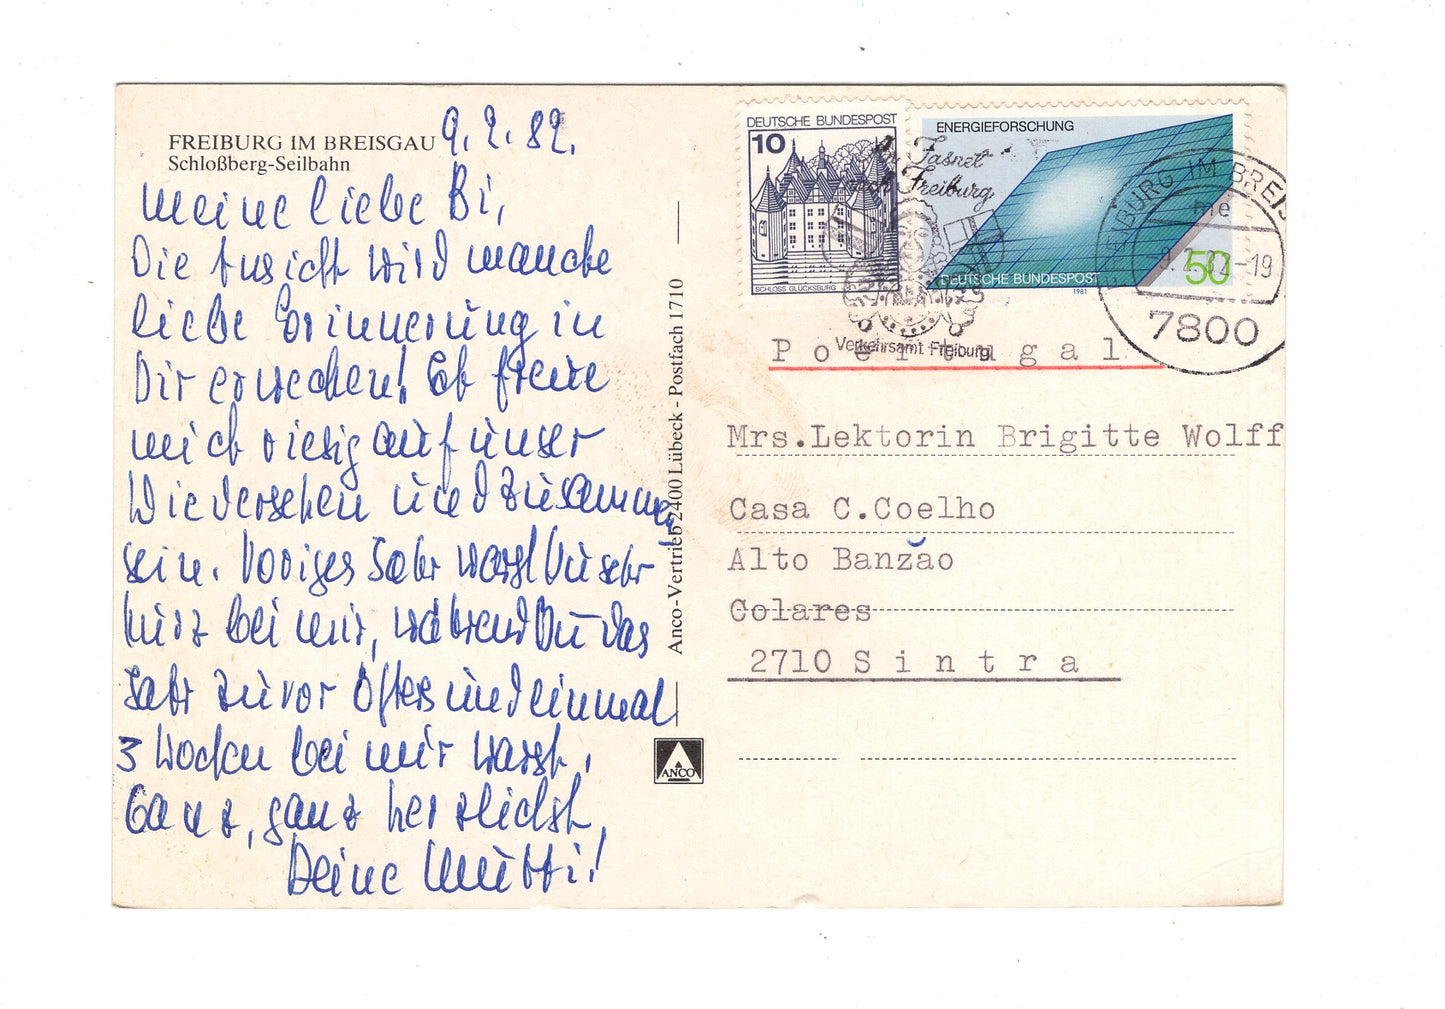 FREIBURG IM BREISGAU
Schloßberg-Seilbahn
9.2.82.
Meine liebe Bi,
Die Ansicht wird manche
liebe Erinnerung in
Dir erwecken! Ich freue
mich riesig auf unser
Wiedersehen und Zusammen
sein. Voriges Jahr warst Du sehr
kurz bei mir, während Du das
Jahr zuvor öfters und einmal
3 Wochen bei mir warst.
Ganz, ganz herzlichst,
Deine Mutti!
Anco-Vertrieb 2400 Lübeck - Postfach 1710
ANCO
DEUTSCHE BUNDESPOST
10
SCHLOSS GLÜCKSBURG
ENERGIEFORSCHUNG
DEUTSCHE BUNDESPOST
1981
50
Fasnet
Freiburg
Verkehrsamt Freiburg
IBURG IM BREIS
me
9.2.82-19
7800
Portugal
Mrs.Lektorin Brigitte Wolff
Casa C.Coelho
Alto Banzão
Colares
2710 Sintra